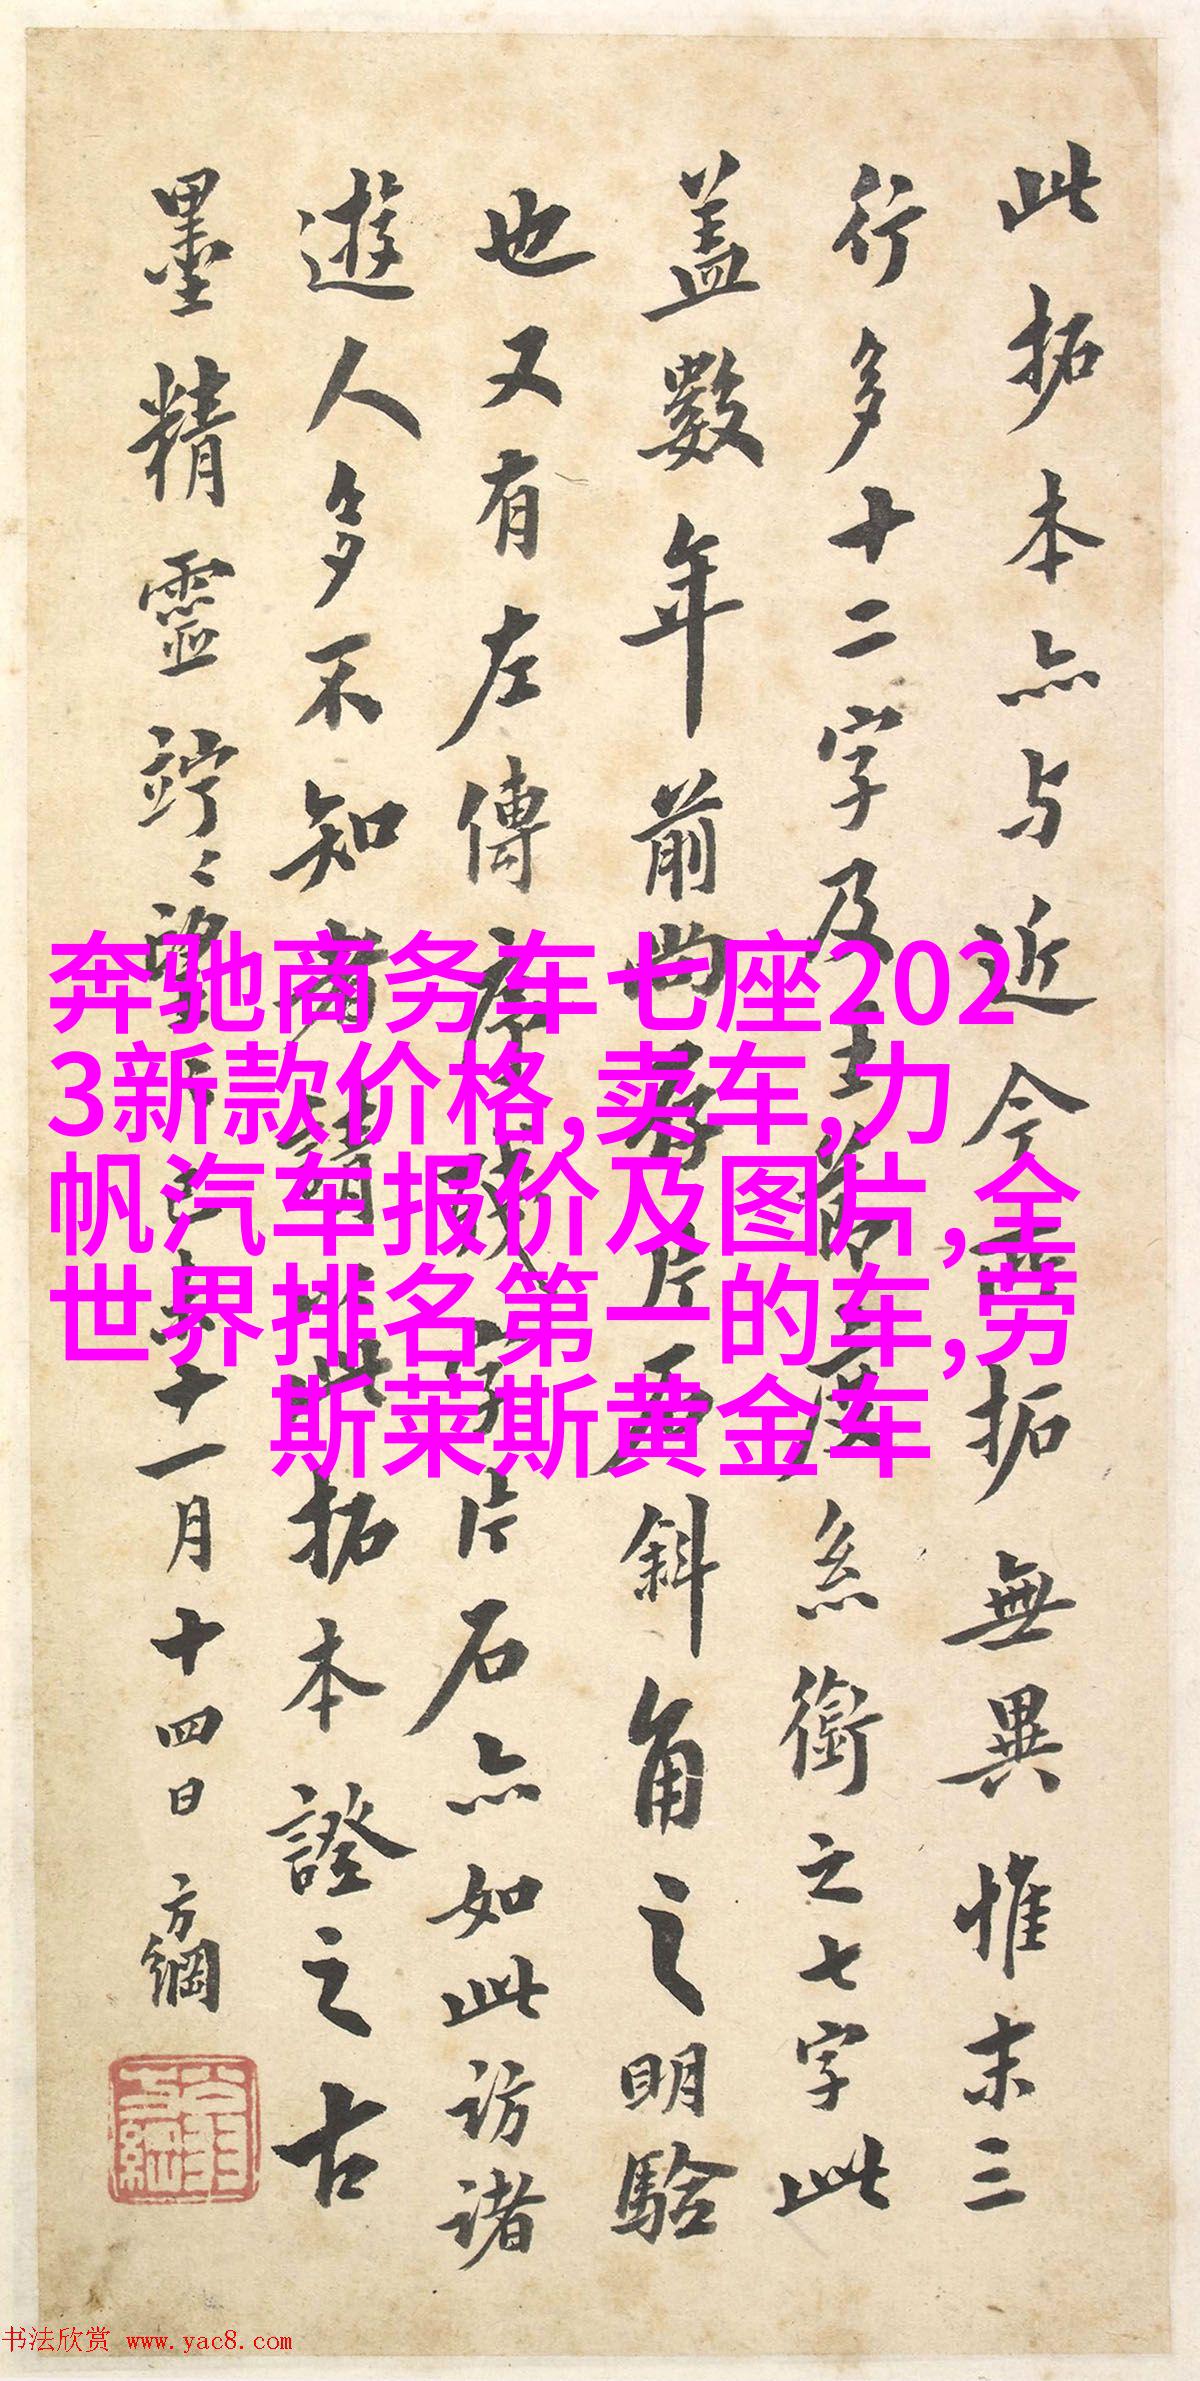 此拓本亦与近今拓無異惟末三
行多十二字及系銜之七字此
蓋數年前尚存片斜角之明驗
也又有左傳序殘字片石亦如此訪諸
遊人多不知者請此拓本證之古
墨精靈竚〻望十一月十四日方綱
奔驰商务车七座202
3新款价格,卖车,力
帆汽车报价及图片,全
世界排名第一的车,劳
斯莱斯黄金车
书法欣赏 www.yac8.com